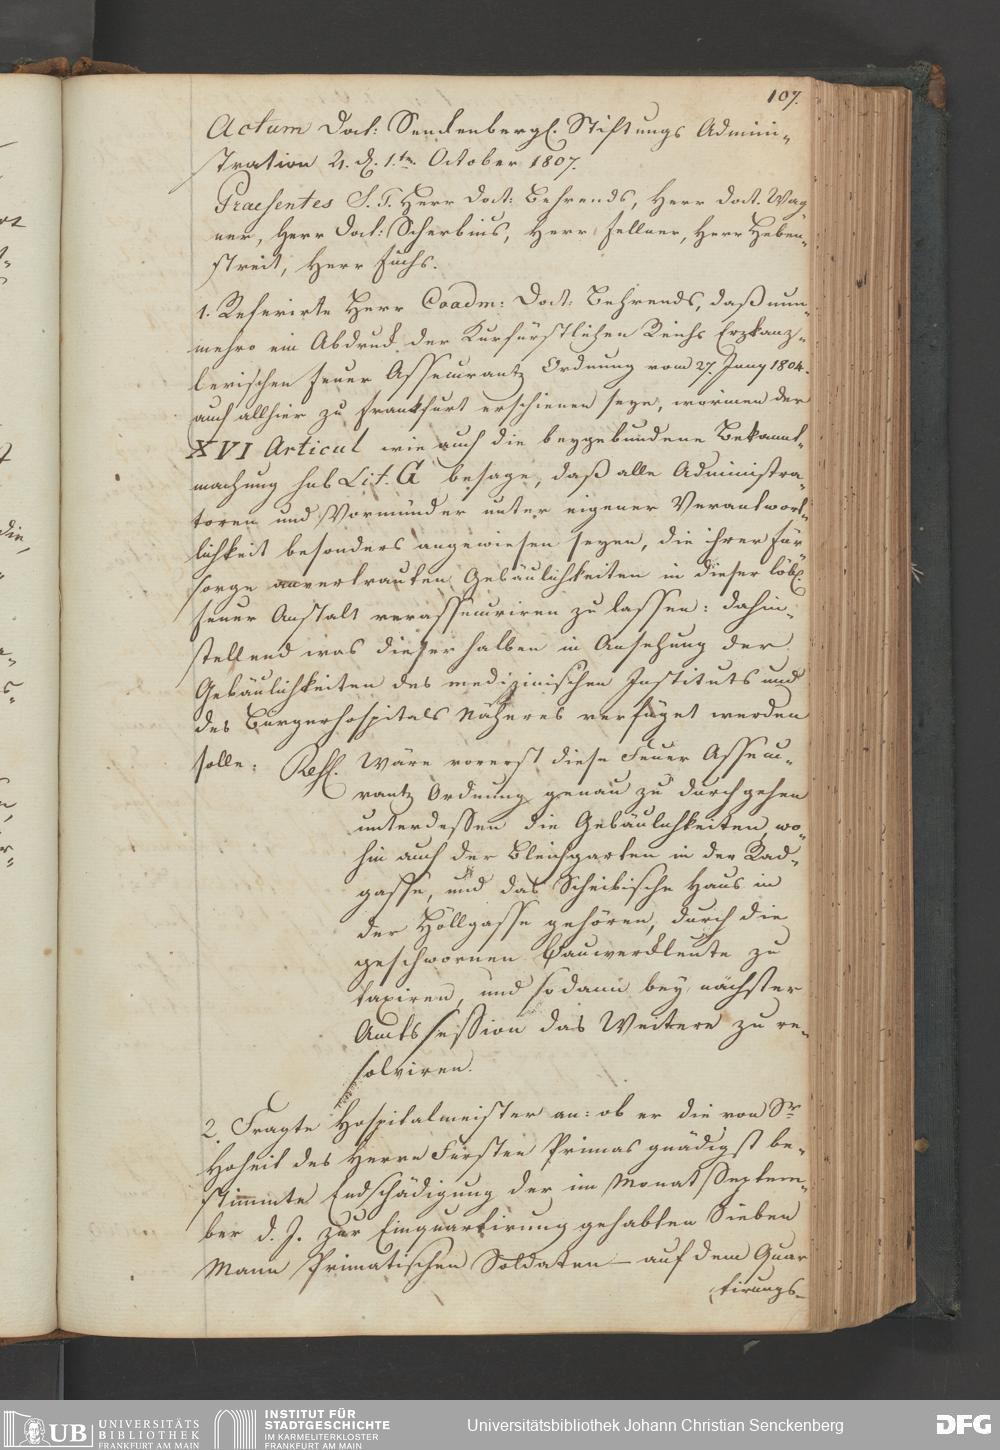 107.
Actum Doct: Senckenbergl. Stiftungs Admini-
stration d. d. 1.ten October 1807.
Praesentes S. T. Herr Doct: Behrends, Herr Doct. Wag
ner, Herr Doct: Scherbius, Herr Fellner, Herr Heben-
streit, Herr Fuchs.
1. Referirte Herr Coadm: Doct: Behrends, daß nun-
mehro ein Abdruck der Kurfürstlichen Reichs Erzkanz-
lerischen Feuer Assecurantz Ordnung vom 27. Juny 1804.
auch allhier zu Frankfurt erschienen seye, worinnen der
XVI Articul wie auch die beygebundene Bekannt-
machung sub Lit. G besage, daß alle Administra-
toren und Vormünder unter eigener Verantwort-
lichkeit besonders angewiesen seyen, die ihrer Für
sorge anvertrauten Gebäulichkeiten in dieser löbl.
Feuer Anstalt verassecuriren zu lassen: dahin-
stellend was dieserhalben in Ansehung der
Gebäulichkeiten des medizinischen Instituts und
des Bürgerhospitals Näheres verfüget werden
solle: Resl. Wäre vorerst diese Feuer Assecu-
rantz Ordnung genau zu durchgehen
unterdessen die Gebäulichkeiten, wo-
hin auch der Bleichgarten in der Rad-
gasse, und das Scheibische Haus in
der Höllgasse gehören, durch die
geschwornen Bauwerckleute zu
taxiren, und sodann bey nächster
Amtssession das Weitere zu re-
solviren.
2. Fragte Hospitalmeister an: ob er die von Sr.
Hoheit des Herrn Fürsten Primas gnädigst be-
stimmte Endschädigung der im Monat Septem-
ber d. J. zur Einquartirung gehabten Sieben
Mann Primatischen Soldaten — auf dem Quar
tirungs-
UB UNIVERSITÄTS
BIBLIOTHEK
FRANKFURT AM MAIN
INSTITUT FÜR
STADTGESCHICHTE
IM KARMELITERKLOSTER
FRANKFURT AM MAIN
Universitätsbibliothek Johann Christian Senckenberg
DFG